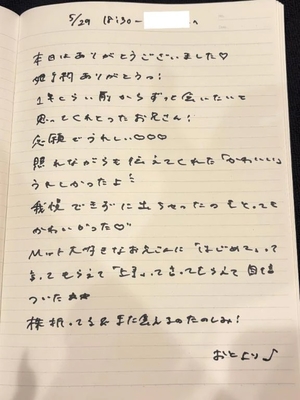 5/29 18:30-
本日はありがとうございました♡
ご予約ありがとうっ!
1年くらい前からずっと会いたいと
思ってくれとったお兄さん!
念願でうれしい♡♡♡
照れながらも伝えてくれた「かわいい」
うれしかったよ
我慢できずに出ちゃったのもとっても
かわいかった♡
Mット大好きなお兄さんに「はじめて」って
言ってもらえて「上手」って言ってもらえて自信
ついた★★
また会えるのたのしみ!
おとより♪